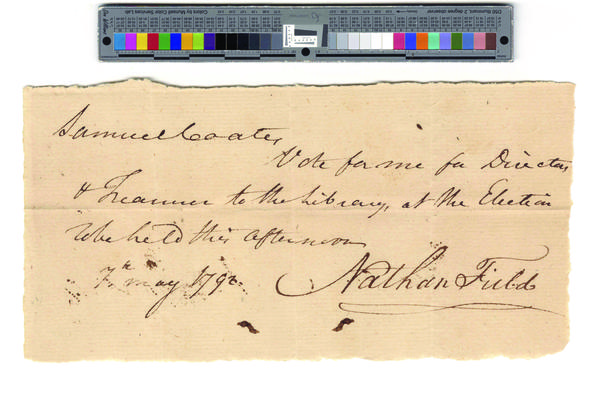 Samuel Coates,
Vote for me for Directors
& Treasurer to the Library, at the Election
to be held this afternoon
7th may 179
Nathan Field